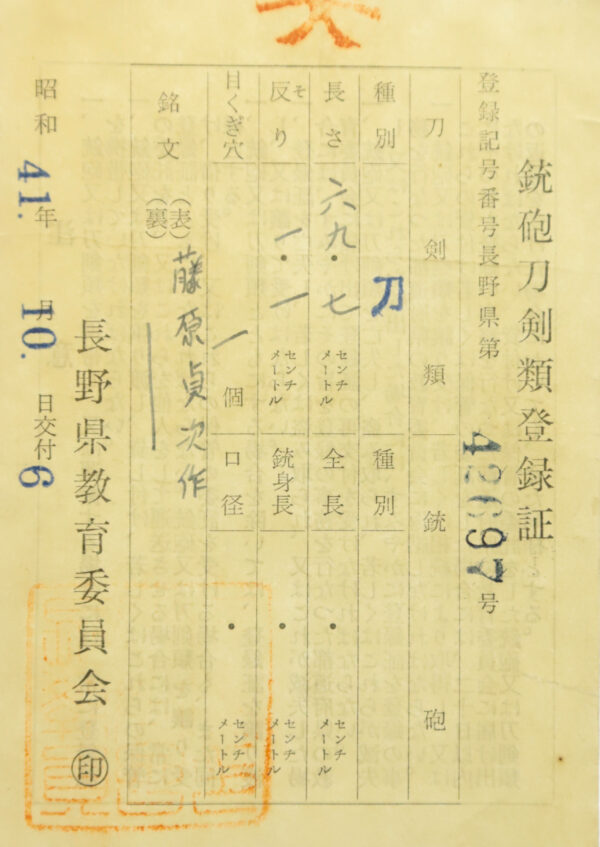 銃砲刀剣類登録証
登録記号番号長野県第42697号
刀剣類
銃砲
種別
刀
種別
長さ
六九・七
センチメートル
全長
・
センチメートル
反り
そ
一・一
センチメートル
銃身長
・
センチメートル
目くぎ穴
一個
口径
・
センチメートル
銘文
(表)
(裏)
藤原貞次作
昭和41.年10.月6日交付
長野県教育委員会 ㊞